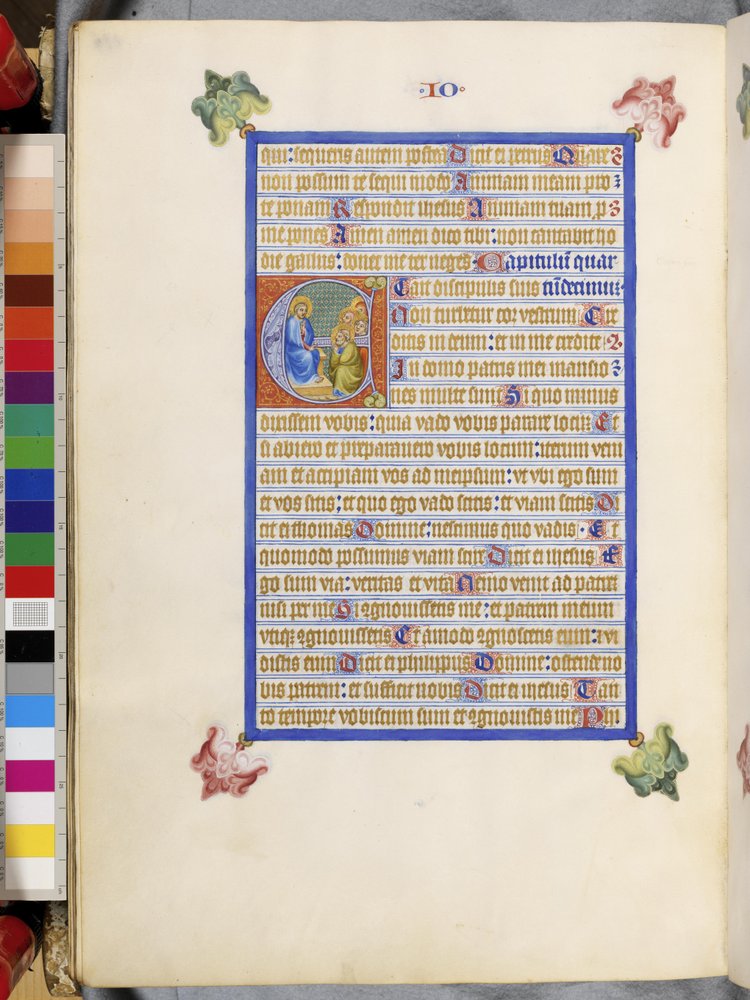 ·IO·
qui: sequeris autem postea Dicit ei petrus Quare
non possum te sequi modo Animam meam pro
te ponam Respondit ihesus Animam tuam p
me pones Amen amen dico tibi: non cantabit ho
die gallus: donec me ter neges Capitulū quar
Et ait discipulis suis tūdecimū
Non turbetur cor vestrum Cre
ditis in deum: et in me credite
In domo patris mei mansio
nes multe sunt Si quo minus
dixissem vobis: quia vado vobis parare locū Et
si abiero et preparavero vobis locum: iterum veni
am et accipiam vos ad meipsum: vt vbi ego sum
et vos sitis: et quo ego vado scitis: et viam scitis Di
cit ei thomas Domine: nescimus quo vadis: Et
quomodo possumus viam scire Dicit ei ihesus E
go sum via: veritas et vita Nemo venit ad patrē
nisi per me Si ꝯgnouissetis me: et patrem meum
vtiqȝ ꝯgnouissetis Et amodo ꝯgnoscetis eum: et vi
distis eum Dicit ei philippus Domine: ostende no
bis patrem: et sufficit nobis Dicit ei ihesus Tan
to tempore vobiscum sum et ꝯgnouistis me Phi